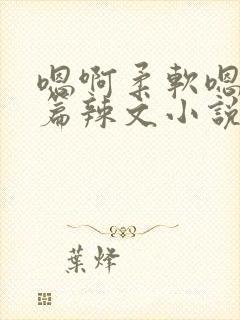 嗯啊柔軟嗯
篇辣文小說
葉烽